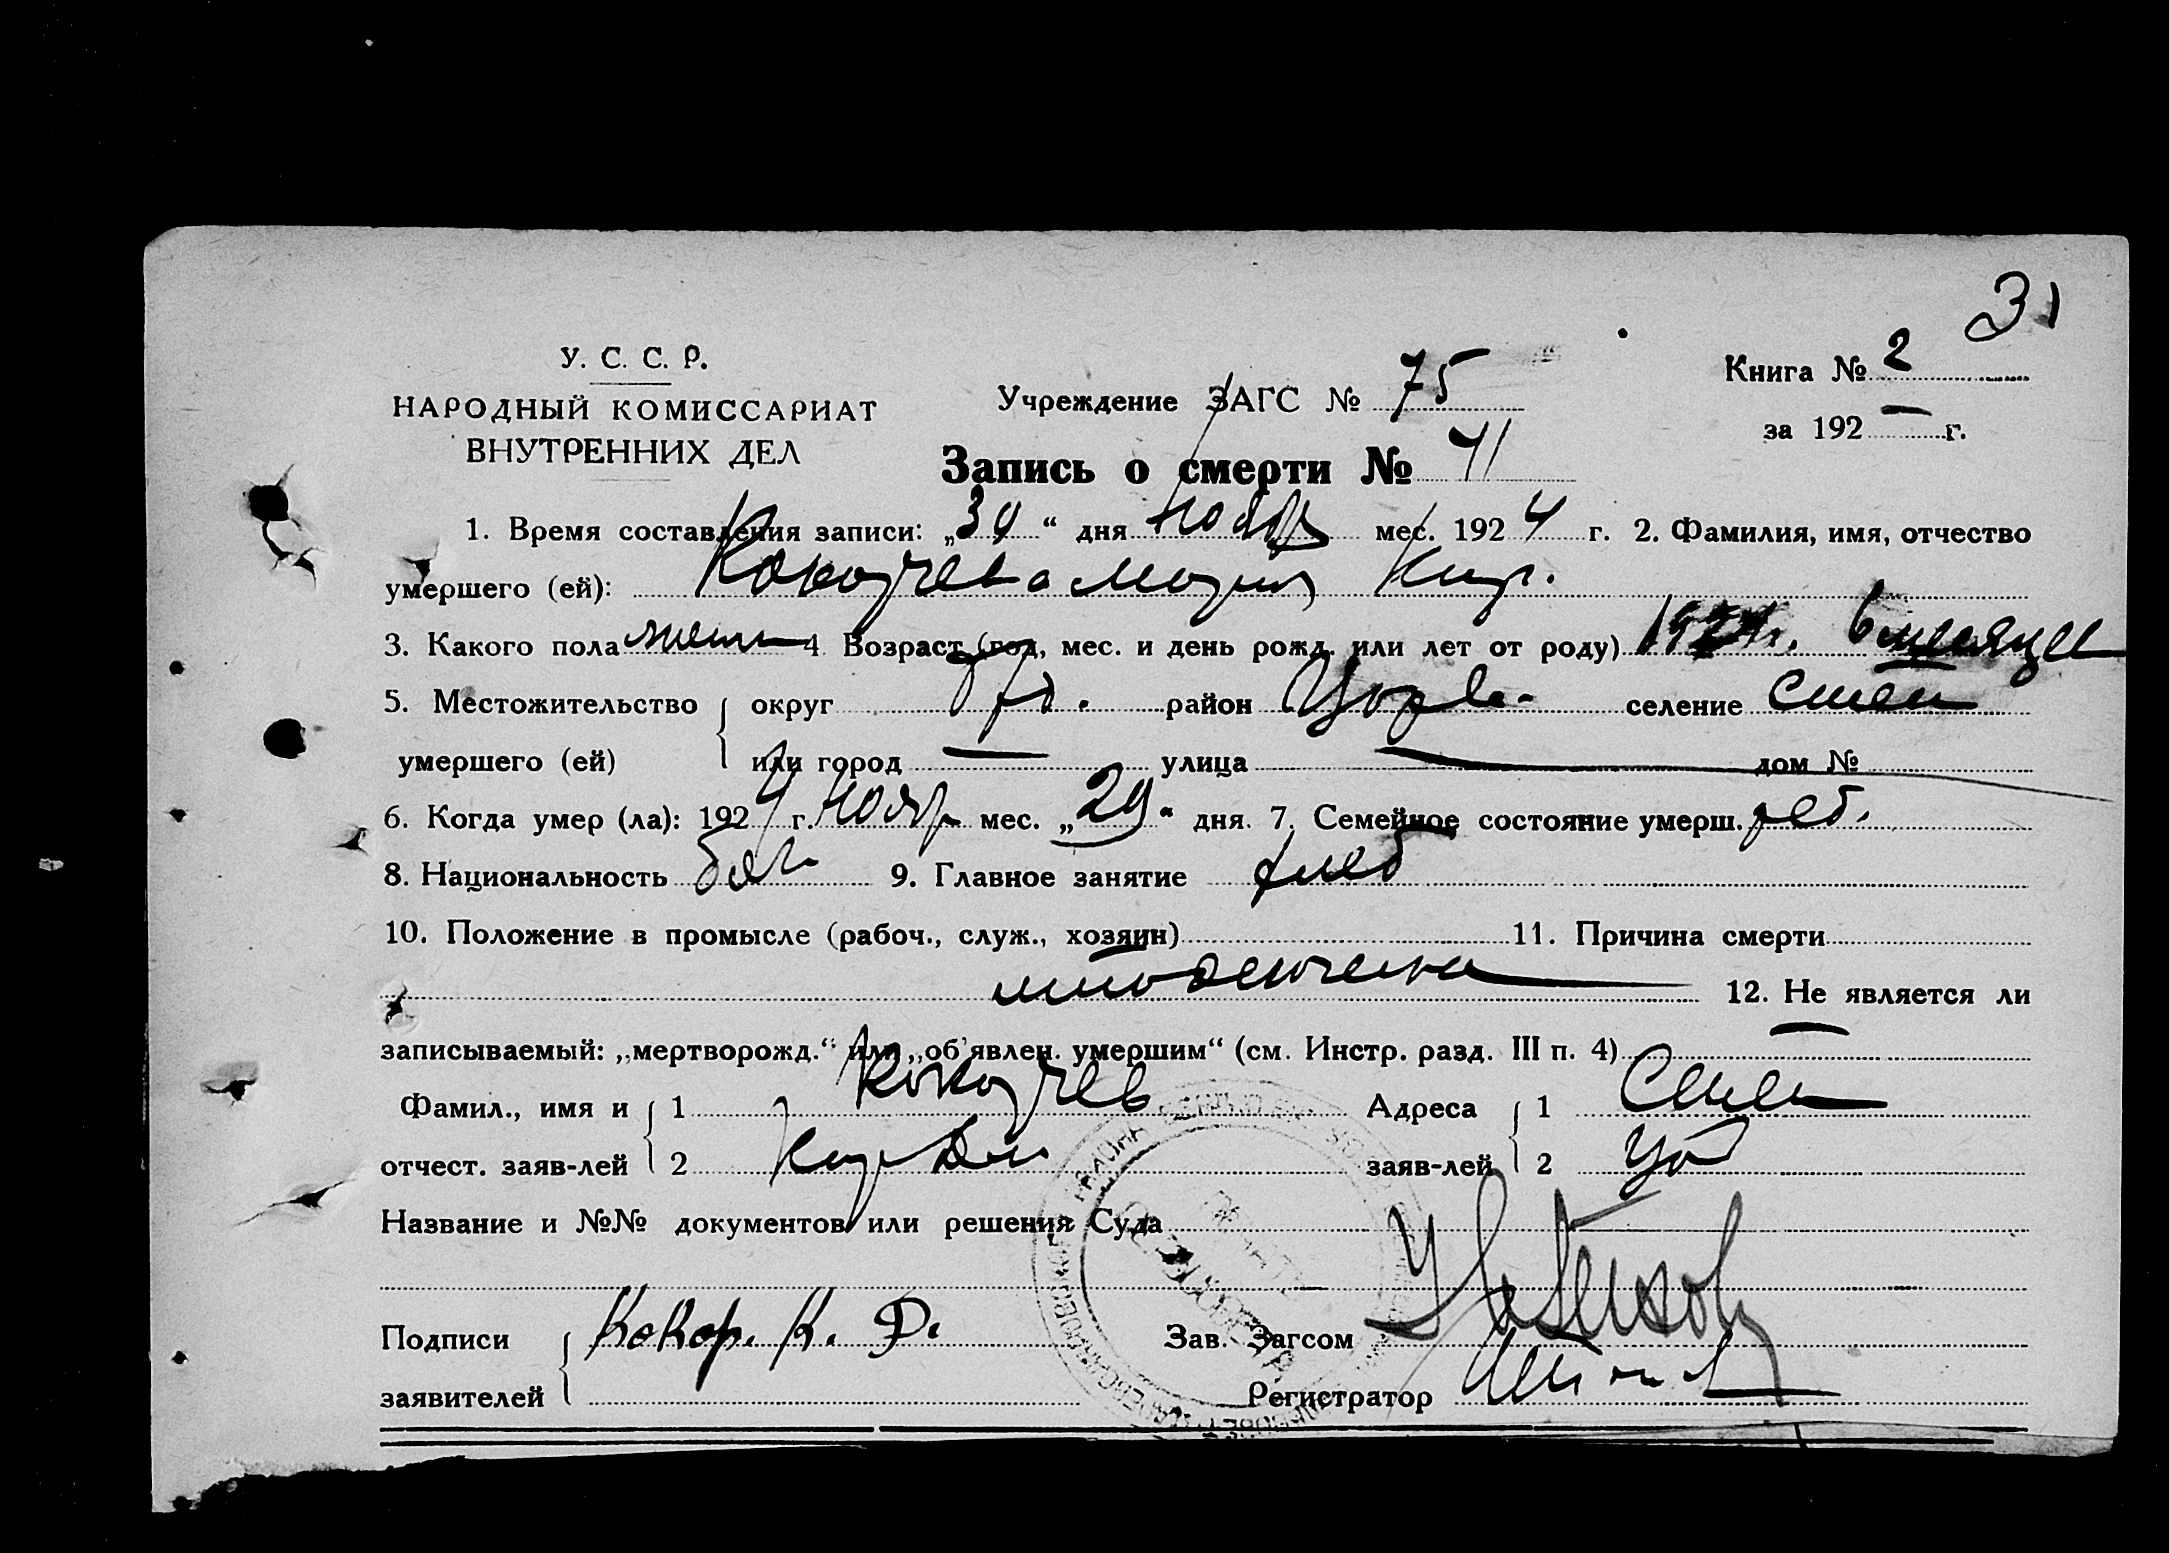 31
У. С. С. Р.
НАРОДНЫЙ КОМИССАРИАТ
ВНУТРЕННИХ ДЕЛ
Учреждение ЗАГС № 75
Книга № 2
за 192 — г.
Запись о смерти № 41
1. Время составления записи: „30“ дня ноябр мес. 1924 г. 2. Фамилия, имя, отчество
умершего (ей): Мария Кир.
3. Какого пола женск 4. Возраст (год, мес. и день рожд. или лет от роду) 1924 г. 6 месяца
5. Местожительство округ район селение
умершего (ей) или город — улица — дом №
6. Когда умер (ла): 1924 г. ноябр мес. „29“ дня. 7. Семейное состояние умерш. реб.
8. Национальность 9. Главное занятие хлеб
10. Положение в промысле (рабоч., служ., хозяин) 11. Причина смерти
младенческа 12. Не является ли
записываемый: „мертворожд.“ или „об'явлен. умершим“ (см. Инстр. разд. III п. 4) —
Фамил., имя и 1 Адреса 1
отчест. заяв-лей 2 заяв-лей 2
Название и №№ документов или решения Суда
Подписи Кокор. К. Д. Зав. Загсом
заявителей Регистратор